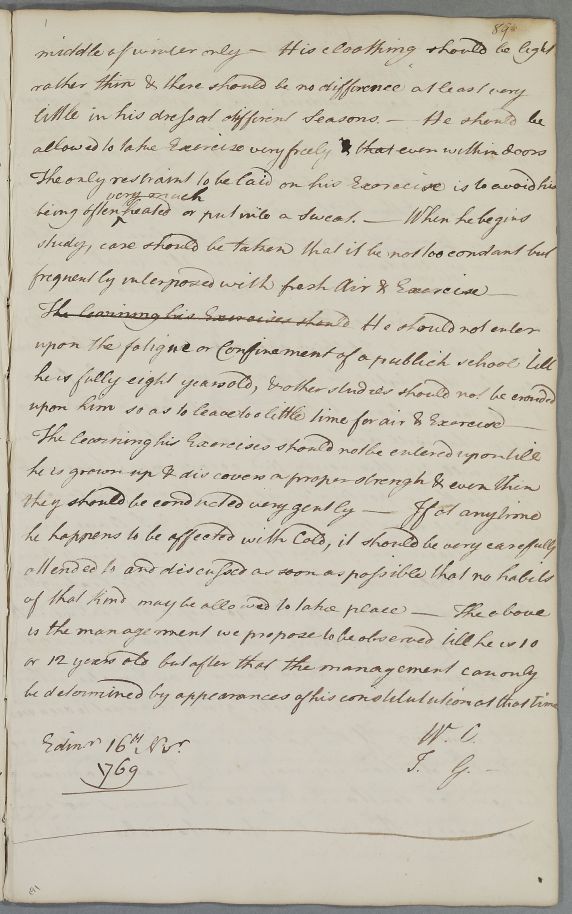 89
middle of winter only — His cloathing should be light
rather thin & there should be no difference at least very
little in his dress at different Seasons. — He should be
allowed to take Exercise very freely & that even within doors
The only restraint to be laid on his Exercise is to avoid his
very much
being often heated or put into a Sweat. — When he begins
study, care should be taken that it be not too constant but
frequently interposed with fresh Air & Exercise —
The learning his Exercises should He should not enter
upon the fatigue or Confinement of a publick school till
he is fully eight years old, & other studies should not be crouded
upon him so as to leave too little time for air & Exercise —
The learning his Exercises should not be entered upon till
he is grown up & discovers a proper strength & even then
they should be conducted very gently — If at any time
he happens to be affected with Cold, it should be very carefully
attended to and discussed as soon as possible that no habits
of that kind may be allowed to take place — The above
is the management we propose to be observed till he is 10
or 12 years old but after that the management can only
be determined by appearances of his constitutution at that time
Edinr 16th Novr.
1769
W. C.
J. G. —